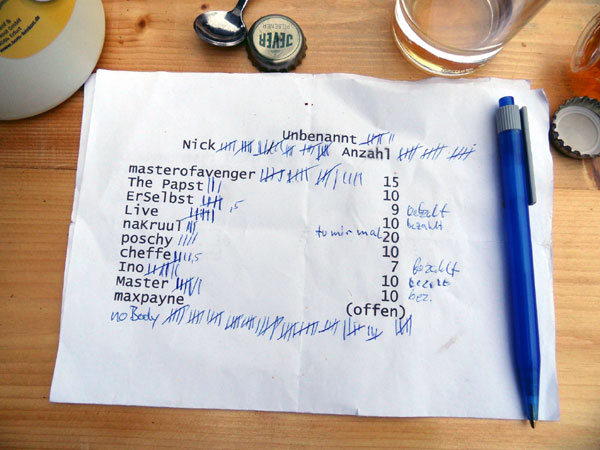 PILSENER
JEVER
Unbenannt
Nick Anzahl
masterofavenger 15
The Papst 10
ErSelbst 9 bezahlt
Live ,5 10 bezahlt
naKruul 20
poschy 10
cheffe ,5 7 bezahlt
Ino 10 bezahlt
Master 10 bez.
maxpayne (offen)
noBody